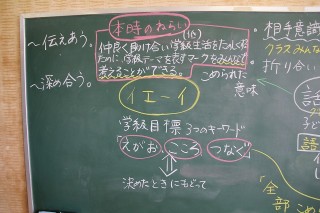 本時のねらい
仲良く助け合い学級生活をたのしく
ために、学級テーマを表すマークをみんなで
考えることができる。
(16)
～伝えあう。
～深め合う。
こめられた
意味
イエーイ
学級目標 3つのキーワード
「えがお」 こころ つなぐ」
決めたときにもどって
・相手意識
クラスみんな
・折り合い
話
語
「全
部